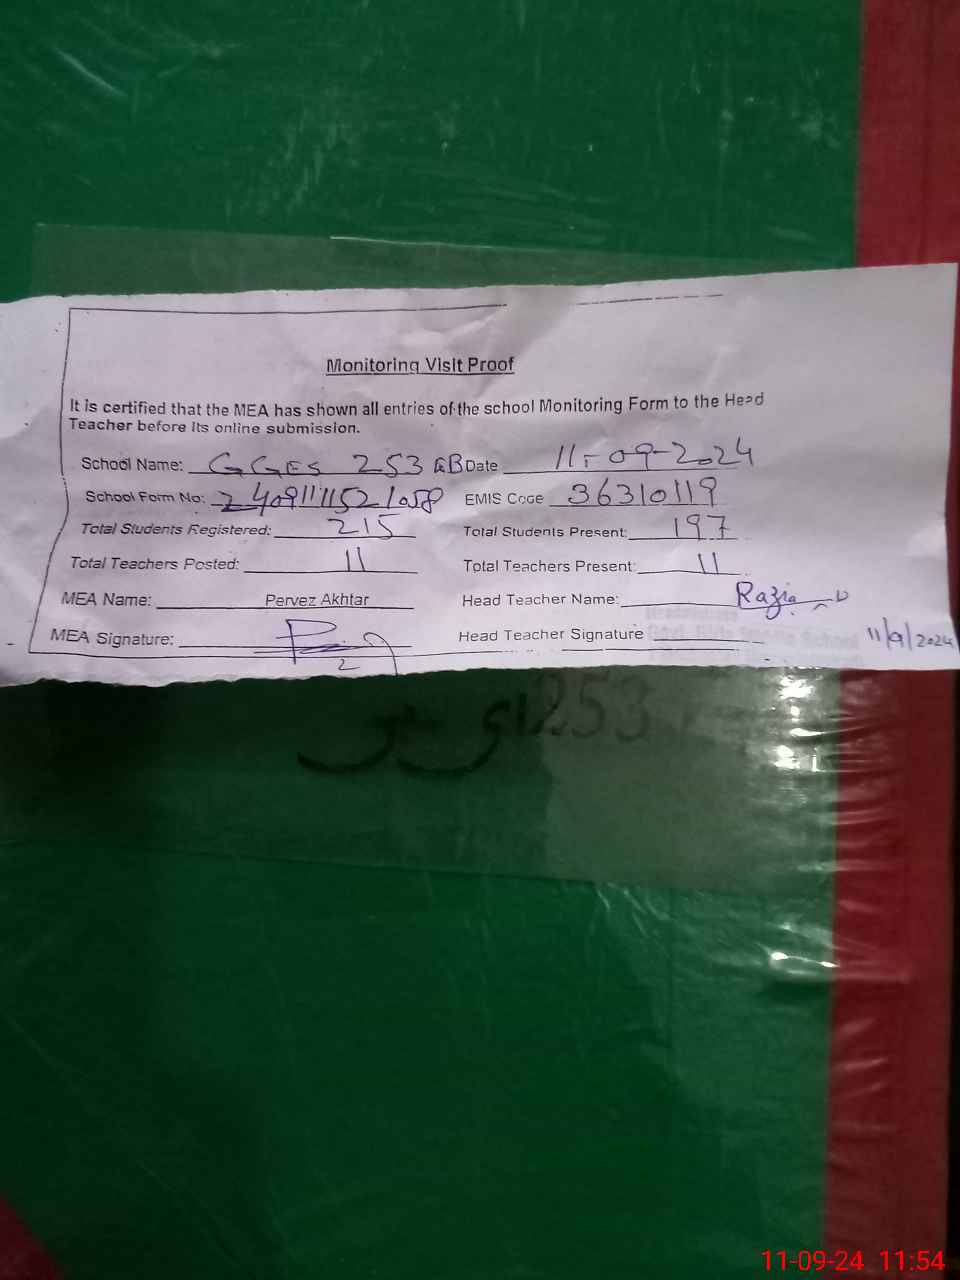 Monitoring Visit Proof
It is certified that the MEA has shown all entries of the school Monitoring Form to the Head
Teacher before its online submission.
School Name: GGES 253 GB Date 11-09-2024
School Form No: EMIS Code 36310119
Total Students Registered: 215 Total Students Present: 197
Total Teachers Posted: 11 Total Teachers Present: 11
MEA Name: Pervez Akhtar Head Teacher Name: Razia
MEA Signature: Head Teacher Signature 11/9/2024
253
11-09-24 11:54